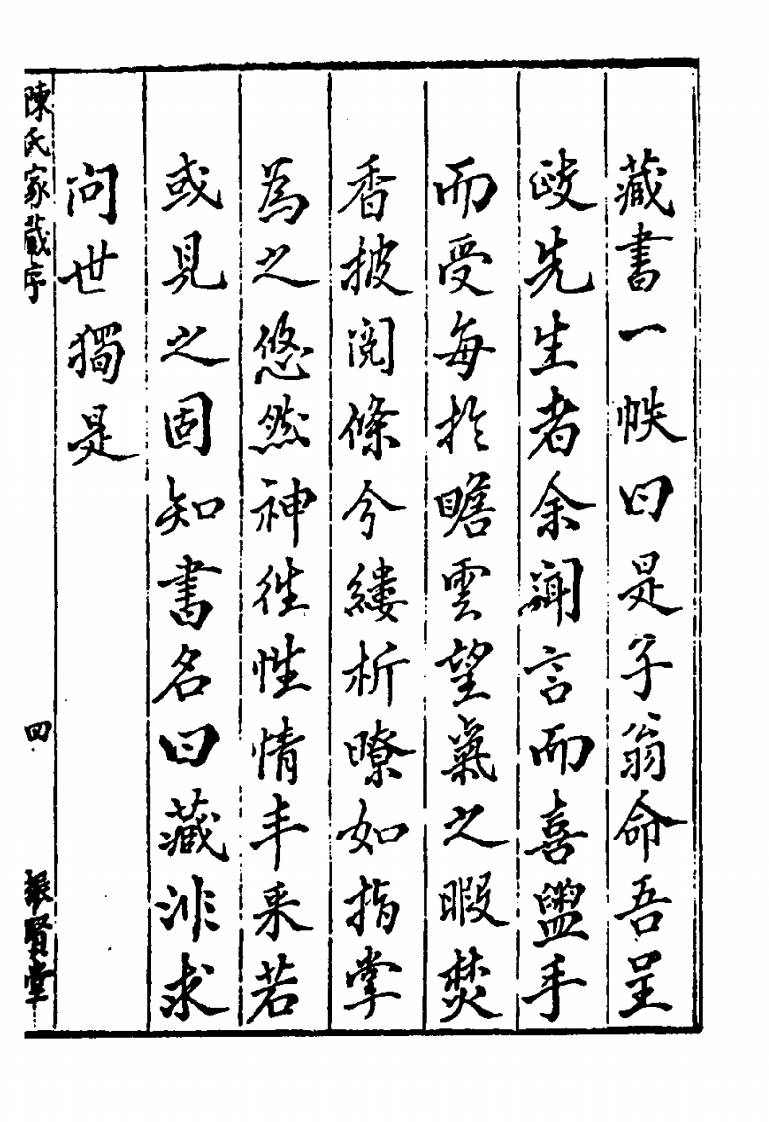 藏書一帙曰是予翁命吾呈
畯先生者余聞言而喜盥手
而受每於瞻雲望氣之暇焚
香披閱條分縷析瞭如指掌
為之悠然神往性情丰采若
或見之固知書名曰藏非求
問世獨是
陳氏家藏序
四
振賢堂